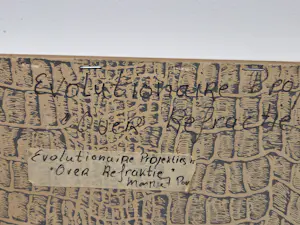 Evolutionaire Pro
Over Refractie
Evolutionaire Projectie,
"Over Refraktie"